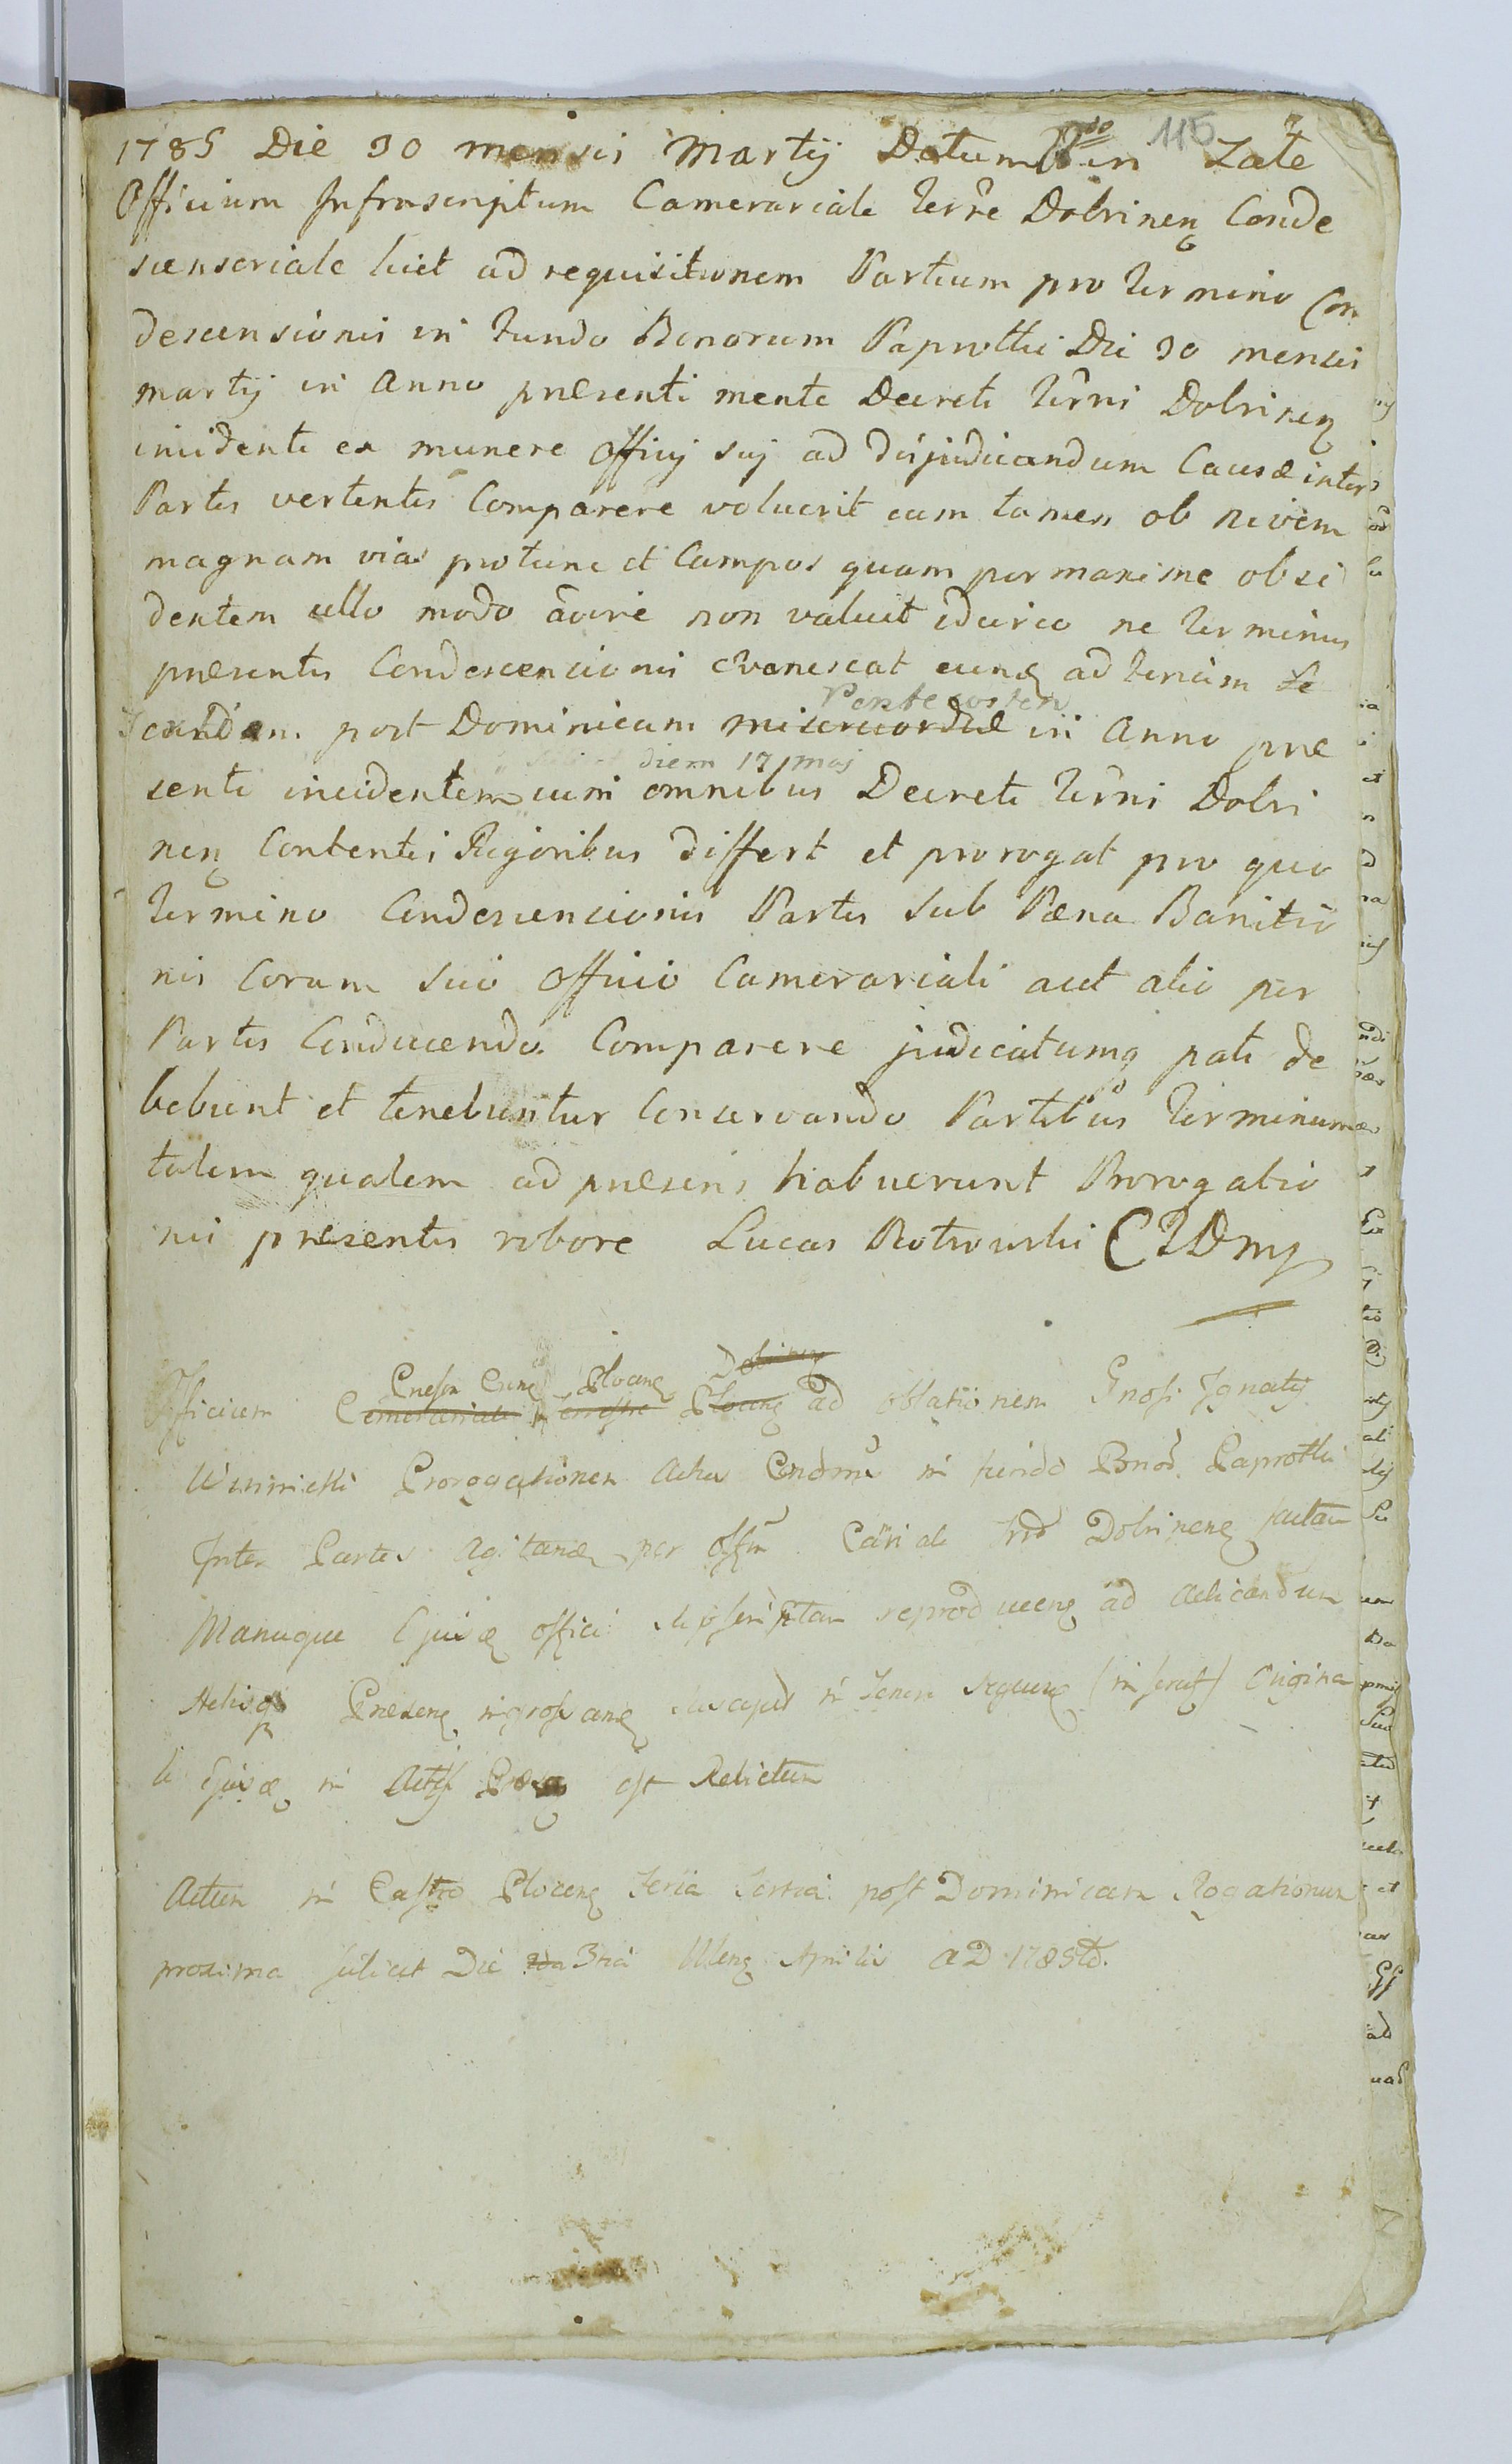 115
1785 Die 30 mensis Martij Datum in Late
Officium Infrascriptum Camerariale Terre Dobrinen Conde
scensoriale licet ad requisitionem Partium pro Termino Con
descensionis in fundo Bonorum Paprotki Die 30 mensis
martij in Anno præsenti mente Decreti Terrni Dobrinen
incidenti ex munere officij sui ad disjudicandum Causæ inter
Partes vertentis Comparere voluerit eum tamen ob nivem
magnam vias protunc et Campos quam per maxime obsi
dentem ullo modo advire non valuit idcirco ne Terminus
præsentis Condescencionis evanescat eunq ad feriam Se
Pentecosten
cundam post Dominicam misericordiæ in Anno præ
diem 17 maj
senti incidentem cum omnibus Decreti Terrni Dobri
nen Contentis Rigoribus differt et prorogat pro quo
Termino Condescencionis Partes sub Pæna Banitio
nis Coram suo officio Camerariali aut alio per
Partes Conducendo Comparere judicatumq pati de
bebunt et tenebuntur Conservando Partibus Terminum
talem qualem ad præsens habuerunt Prorogatio
nis presentis robore Lucas Piotrowski CTDmp
Dobrinen
Præsen Plocen
Officium Camerariale Terrestre Plocen ad oblationem Gnosi Ignatij
Winnicki Prorogationem Actus Cndsnis in fundo Bnor Paprotki
Inter Partes Agitandæ per offm Cariale Trræ Dobrinen factam
Manuque Ejusd offici subscriptam reproducen ad Acticandum
Actisq Præsen ingrossand suscepit in Tenore sequen (inserat) Origina
le Ejusd in Actis Præsen est Relictum
Actum in Castro Plocen Feria Tertia post Dominicam Rogationum
proxima scilicet Die 3tia Mens Aprilis AD 1785to.